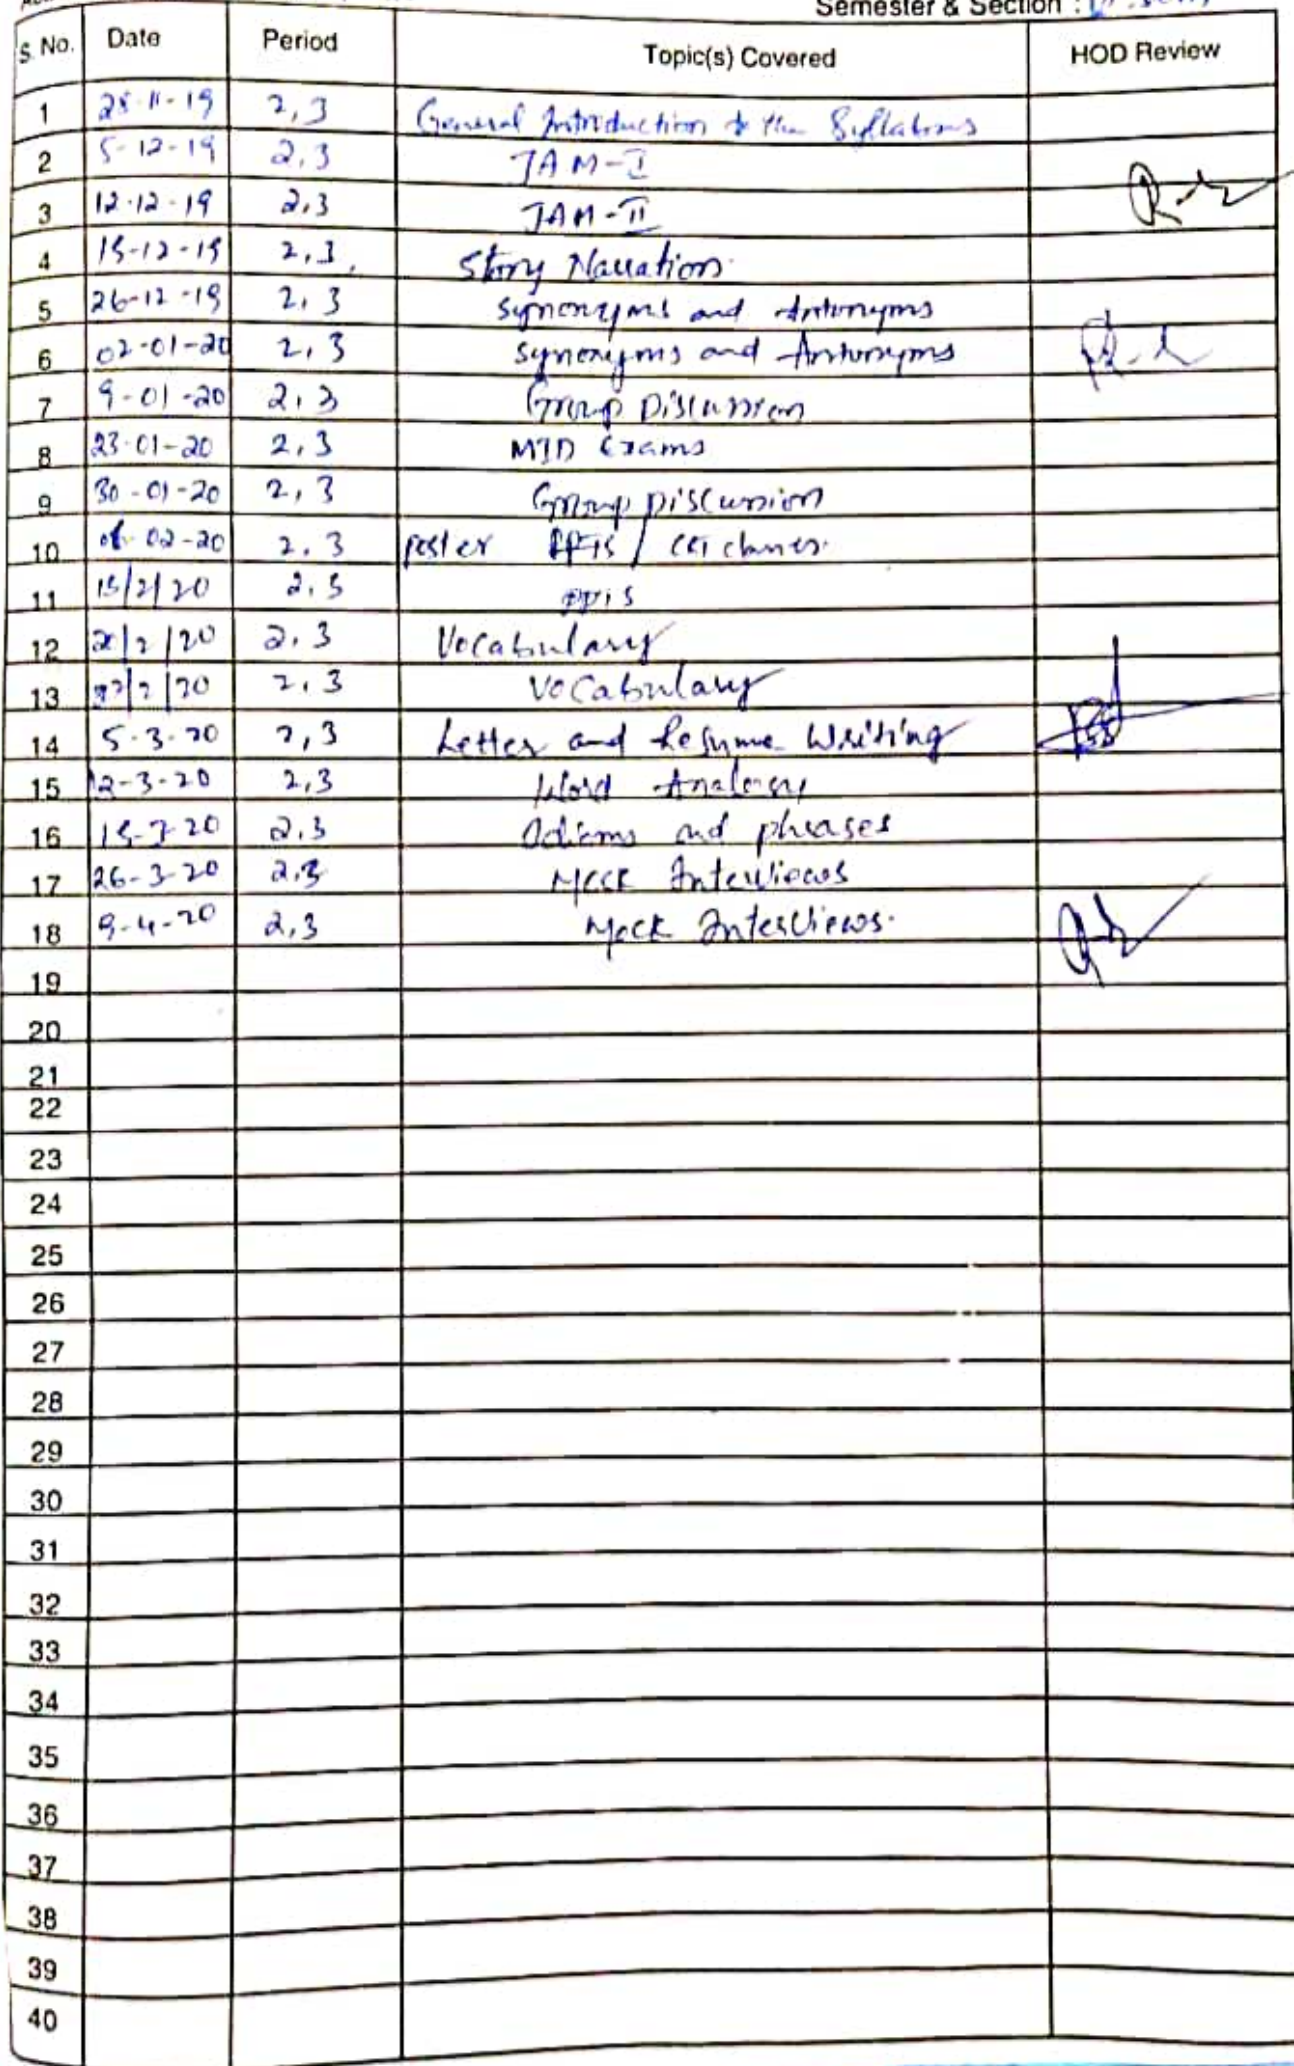 Semester & Section :
S. No. Date Period Topic(s) Covered HOD Review
1 28-11-19 2,3 General Introduction to the Syllabus
2 5-12-19 2,3 JAM-I
3 12-12-19 2,3 JAM-II
4 19-12-19 2,3 Story Narration
5 26-12-19 2,3 Synonyms and Antonyms
6 02-01-20 2,3 Synonyms and Antonyms
7 9-01-20 2,3 Group Discussion
8 23-01-20 2,3 MID Exams
9 30-01-20 2,3 Group Discussion
10 06-02-20 2,3 poster PPTs /
11 13/2/20 2,3 PPTs
12 20/2/20 2,3 Vocabulary
13 27/2/20 2,3 Vocabulary
14 5-3-20 2,3 Letter and Resume Writing
15 12-3-20 2,3 Word Analogy
16 19-3-20 2,3 Idioms and phrases
17 26-3-20 2,3 Mock Interviews
18 9-4-20 2,3 Mock Interviews.
19
20
21
22
23
24
25
26
27
28
29
30
31
32
33
34
35
36
37
38
39
40